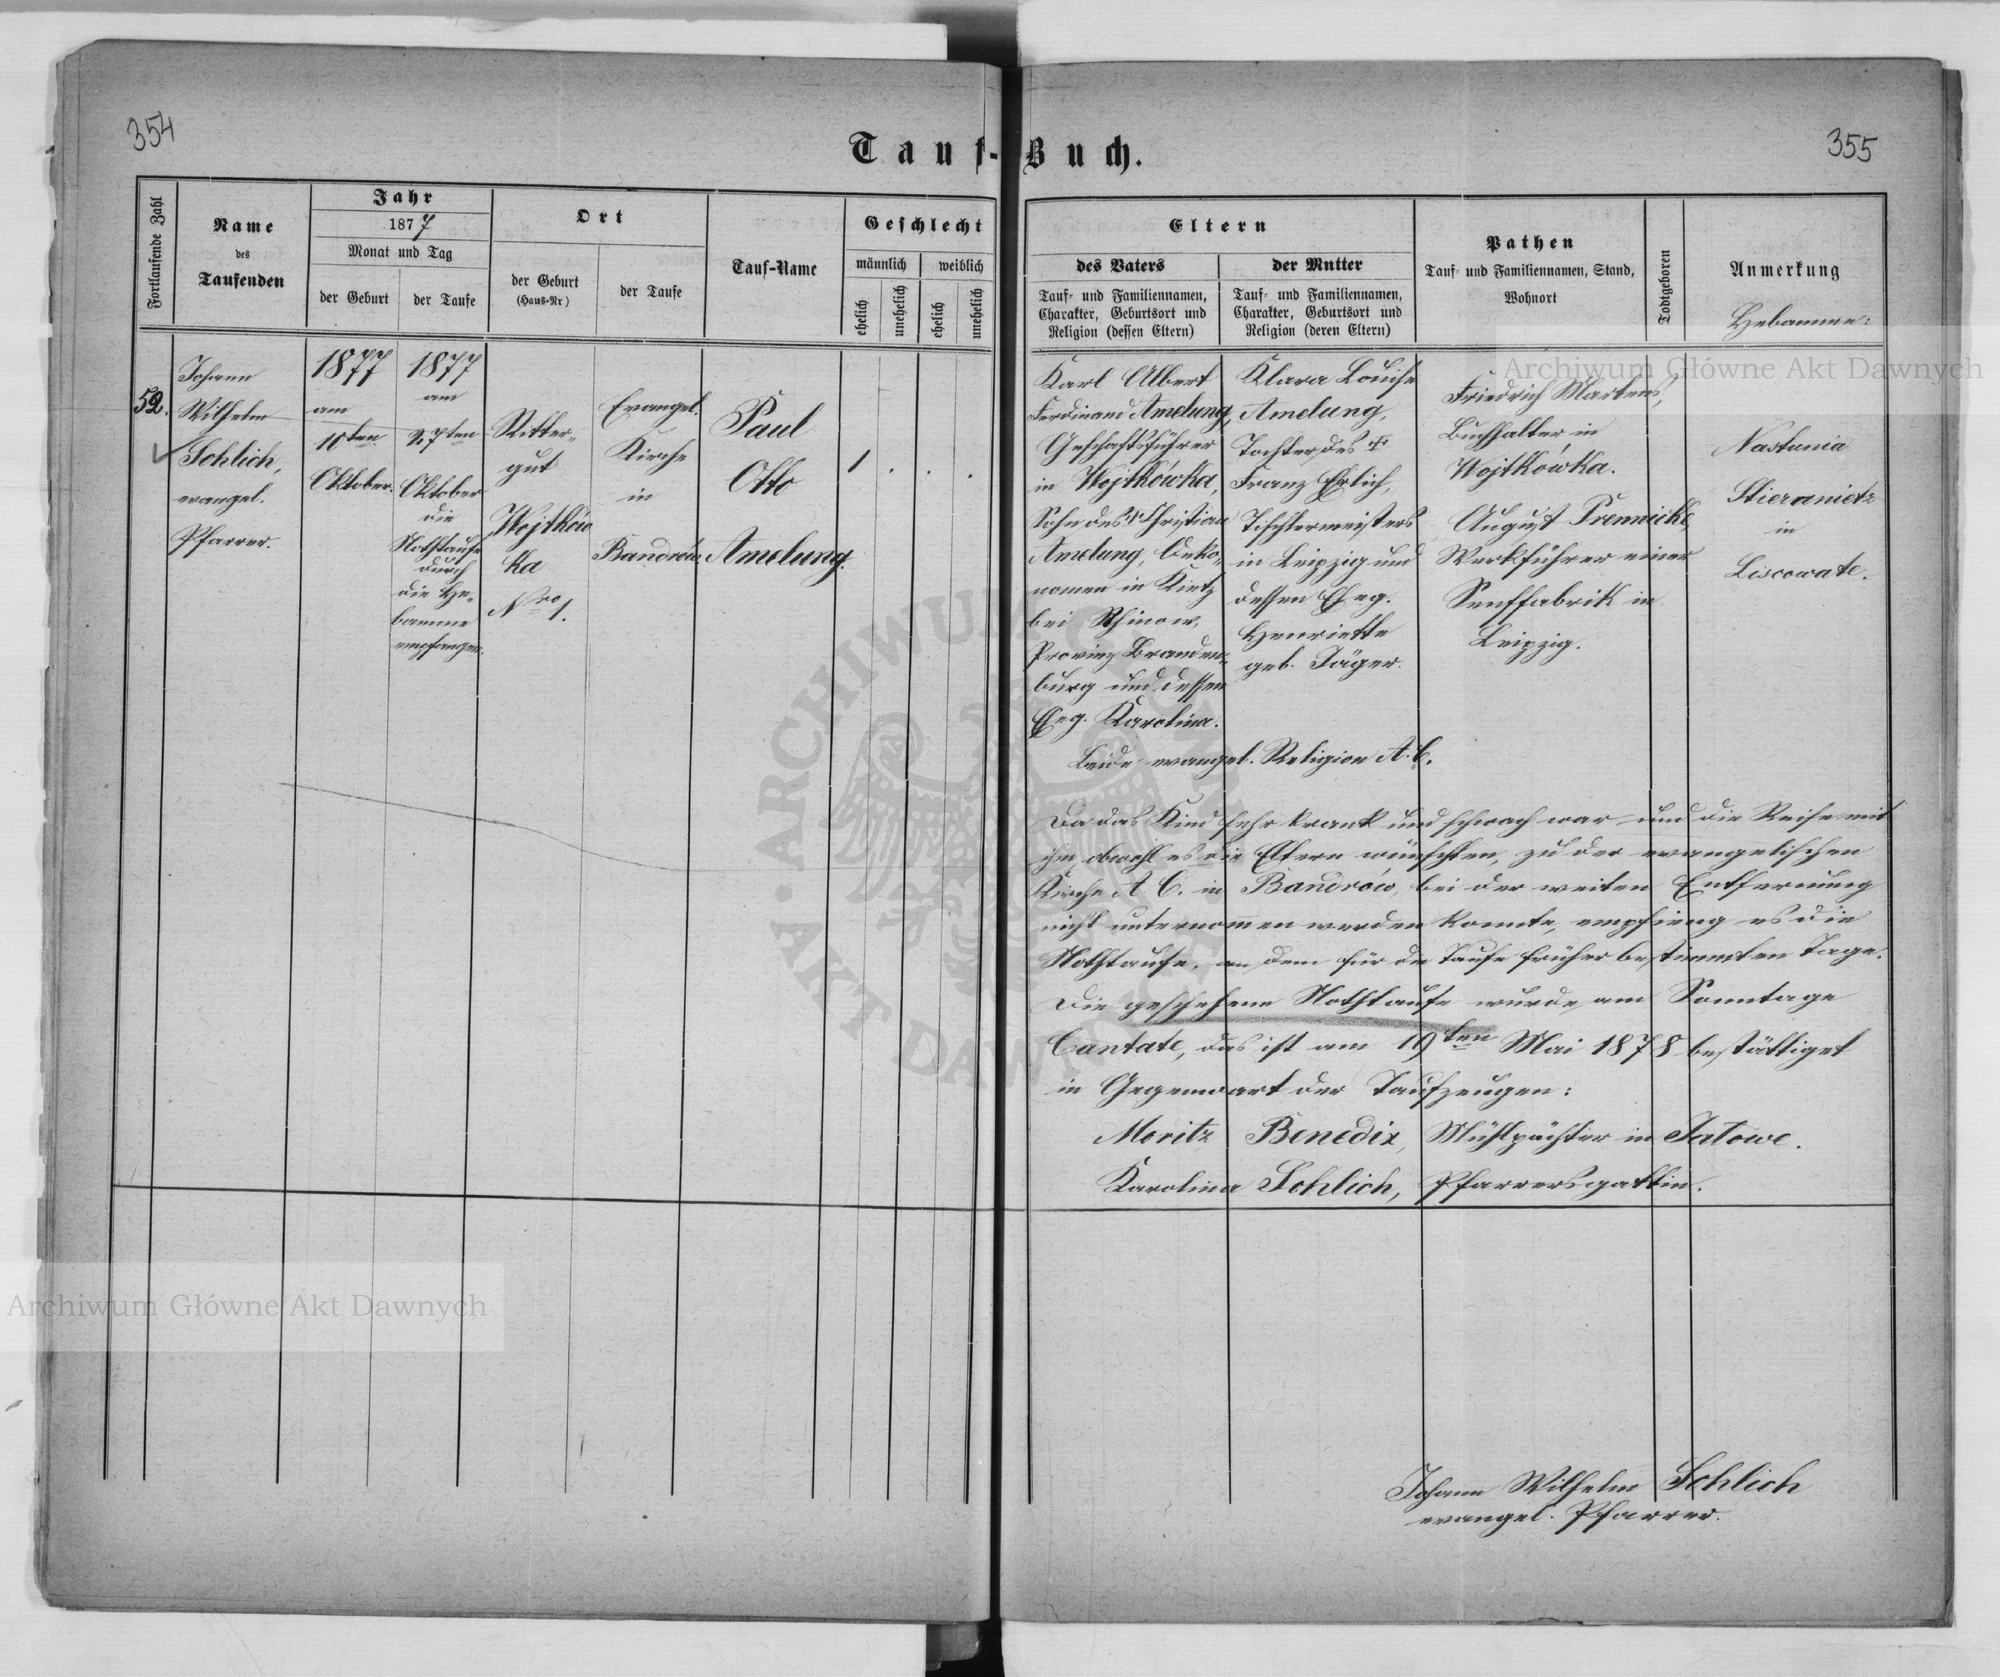 354
355
Tauf-Buch.
Fortlaufende Zahl
Name
des
Taufenden
Jahr
1877
Monat und Tag
der Geburt
der Taufe
Ort
der Geburt
(Haus-Nr)
der Taufe
Tauf-Name
Geschlecht
männlich
weiblich
ehelich
unehelich
ehelich
unehelich
Eltern
des Vaters
Tauf- und Familiennamen,
Charakter, Geburtsort und
Religion (dessen Eltern)
der Mutter
Tauf- und Familiennamen,
Charakter, Geburtsort und
Religion (deren Eltern)
Pathen
Tauf- und Familiennamen, Stand,
Wohnort
Todtgeboren
Anmerkung
Hebamme:
52.
Johann
Wilhelm
Schlich,
evangel.
Pfarrer.
1877
am
10ten
Oktober.
1877
am
27ten
Oktober
die
Nothtaufe
durch
die He-
bamme
empfangen.
Ritter-
gut
Wojtków
ka
Nro 1.
Evangel.
Kirche
in
Bandrów
Paul
Otto
Amelung.
1 . . .
Karl Albert
Ferdinand Amelung,
Geschäftsführer
in Wojtkówka,
Sohn des † Christian
Amelung, Oeko-
nomen in Kietz
bei Rhinow,
Provinz Branden-
burg und dessen
Eheg. Karolina.
Klara Louise
Amelung,
Tochter des †
Franz Ehrlich,
Tischlermeisters
in Leipzig und
dessen Eheg.
Henriette
geb. Jäger.
Beide evangel. Religion A. C.
Friedrich Martens,
Buchhalter in
Wojtkówka.
August Prennicke,
Werkführer einer
Senffabrik in
Leipzig.
Nastunia
Stieranietz
in
Liscowate.
Da das Kind sehr krank und schwach war und die Reise mit
ihm, obwohl es die Eltern wünschten, zu der evangelischen
Kirche A. C. in Bandrów, bei der weiten Entfernung
nicht unternommen werden konnte, empfieng es die
Nothtaufe, an dem für die Taufe früher bestimmten Tage.
Die geschehene Nothtaufe wurde am Sonntage
Cantate, das ist am 19ten Mai 1878 bestättiget
in Gegenwart der Taufzeugen:
Moritz Benedix, Mühlpächter in Jatowe.
Karolina Schlich, Pfarrersgattin.
Johann Wilhelm Schlich
evangel. Pfarrer.
Archiwum Główne Akt Dawnych
Archiwum Główne Akt Dawnych